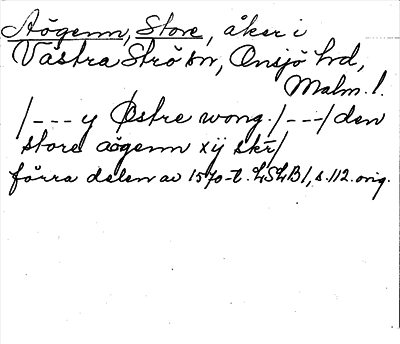 Aögenn, Store, åker i
Västra Strö sn, Onsjö hd,
Malm. l.
/--- y Østre wong. /---/ den
store aögenn xij skr/
förra delen av 1570-t. LSLB 1, s. 112. orig.